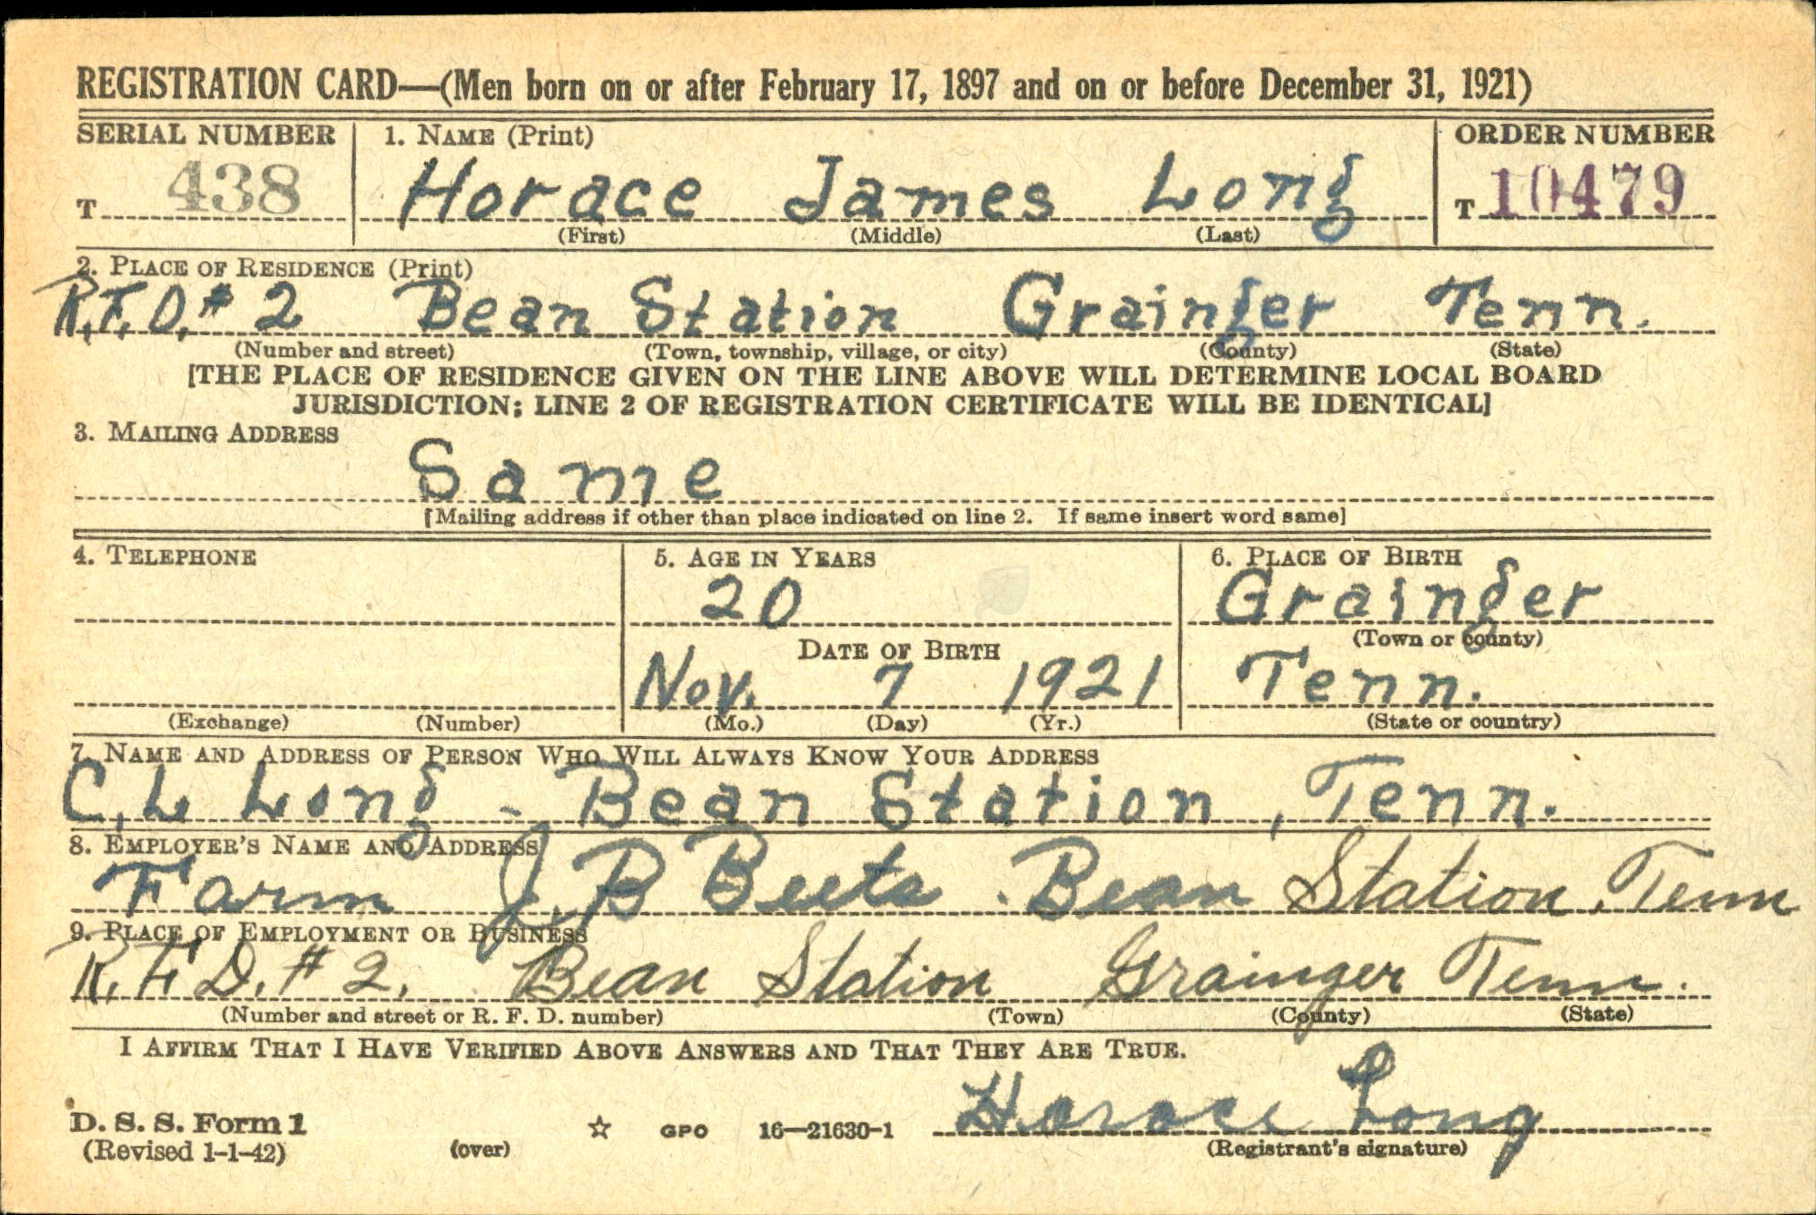 REGISTRATION CARD—(Men born on or after February 17, 1897 and on or before December 31, 1921)
SERIAL NUMBER 1. NAME (Print) ORDER NUMBER
T 438 Horace James Long T 10479
(First) (Middle) (Last)
2. PLACE OF RESIDENCE (Print)
R.F.D. # 2 Bean Station Grainger Tenn.
(Number and street) (Town, township, village, or city) (County) (State)
[THE PLACE OF RESIDENCE GIVEN ON THE LINE ABOVE WILL DETERMINE LOCAL BOARD
JURISDICTION; LINE 2 OF REGISTRATION CERTIFICATE WILL BE IDENTICAL]
3. MAILING ADDRESS
Same
[Mailing address if other than place indicated on line 2. If same insert word same]
4. TELEPHONE 5. AGE IN YEARS 6. PLACE OF BIRTH
20 Grainger
DATE OF BIRTH (Town or county)
Nov. 7 1921 Tenn.
(Exchange) (Number) (Mo.) (Day) (Yr.) (State or country)
7. NAME AND ADDRESS OF PERSON WHO WILL ALWAYS KNOW YOUR ADDRESS
C. L Long - Bean Station, Tenn.
8. EMPLOYER'S NAME AND ADDRESS
Farm J. B Beets. Bean Station, Tenn
9. PLACE OF EMPLOYMENT OR BUSINESS
R. F D. # 2. Bean Station Grainger Tenn.
(Number and street or R. F. D. number) (Town) (County) (State)
I AFFIRM THAT I HAVE VERIFIED ABOVE ANSWERS AND THAT THEY ARE TRUE.
D. S. S. Form 1
(Revised 1-1-42) (over) ☆ GPO 16—21630-1 Horace Long
(Registrant's signature)